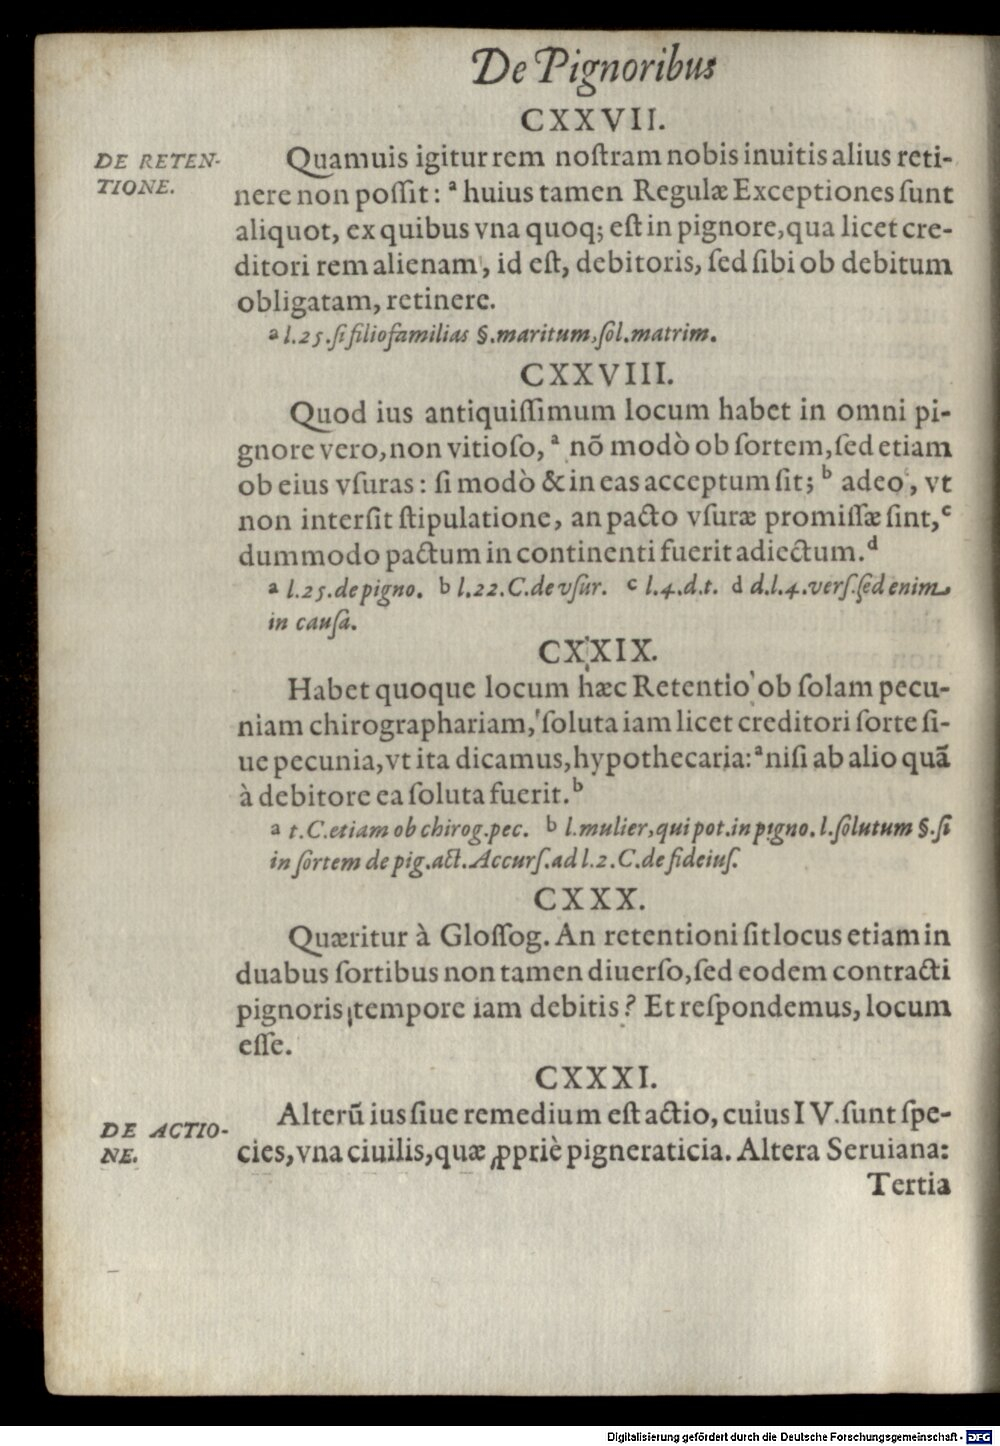 De Pignoribus
CXXVII.
DE RETEN-
TIONE.
Quamuis igitur rem noſtram nobis inuitis alius reti-
nere non poſſit: ᵃ huius tamen Regulæ Exceptiones ſunt
aliquot, ex quibus vna quoq; eſt in pignore, qua licet cre-
ditori rem alienam, id eſt, debitoris, ſed ſibi ob debitum
obligatam, retinere.
a l.25.ſi filiofamilias §.maritum, ſol.matrim.
CXXVIII.
Quod ius antiquiſſimum locum habet in omni pi-
gnore vero, non vitioſo, ᵃ nõ modò ob ſortem, ſed etiam
ob eius vſuras: ſi modò & in eas acceptum ſit; ᵇ adeo, vt
non interſit ſtipulatione, an pacto vſuræ promiſſæ ſint, ᶜ
dummodo pactum in continenti fuerit adiectum. ᵈ
a l.25.de pigno. b l.22.C.de vſur. c l.4.d.t. d d.l.4.verſ.ſed enim
in cauſa.
CXXIX.
Habet quoque locum hæc Retentio ob ſolam pecu-
niam chirographariam, ſoluta iam licet creditori ſorte ſi-
ue pecunia, vt ita dicamus, hypothecaria: ᵃ niſi ab alio quã
à debitore ea ſoluta fuerit. ᵇ
a t.C.etiam ob chirog.pec. b l.mulier, qui pot.in pigno.l.ſolutum §.ſi
in ſortem de pig.act.Accurſ.ad l.2.C.de fideiuſ.
CXXX.
Quæritur à Gloſſog. An retentioni ſit locus etiam in
duabus ſortibus non tamen diuerſo, ſed eodem contracti
pignoris tempore iam debitis? Et reſpondemus, locum
eſſe.
CXXXI.
DE ACTIO-
NE.
Alterũ ius ſiue remedium eſt actio, cuius IV. ſunt ſpe-
cies, vna ciuilis, quæ ꝓpriè pigneraticia. Altera Seruiana:
Tertia
Digitalisierung gefördert durch die Deutsche Forschungsgemeinschaft - DFG